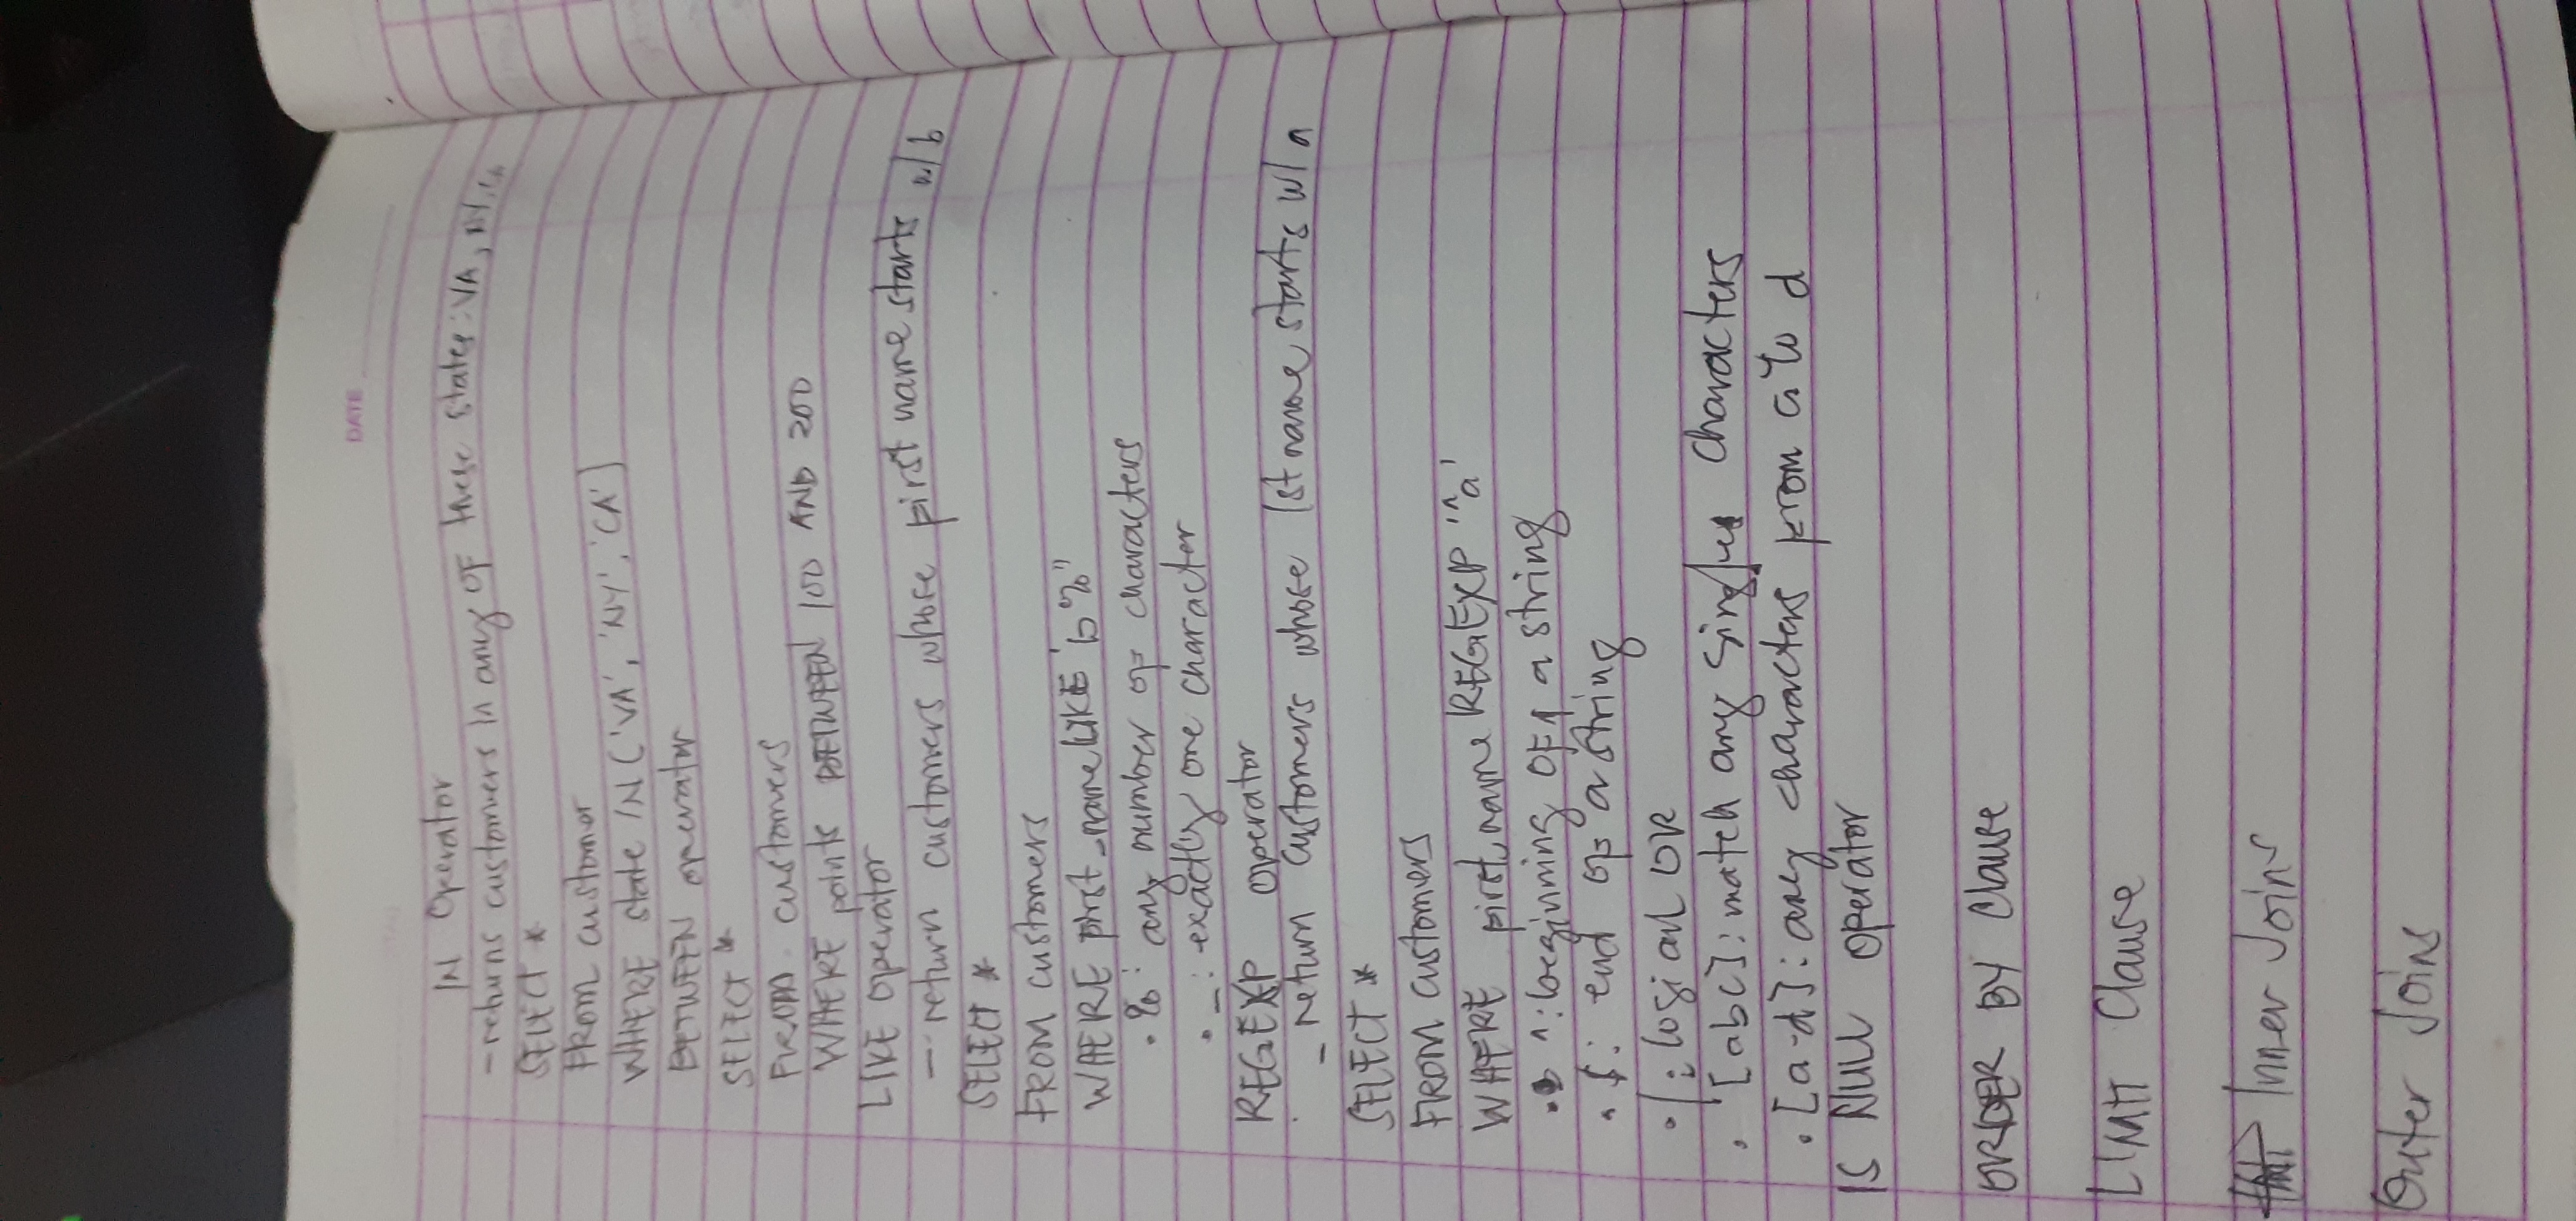 DATE
IN Operator
- returns customers in any of these states: VA, NY, CA
SELECT *
FROM customer
WHERE state IN ('VA', 'NY', 'CA')
BETWEEN operator
SELECT *
FROM customers
WHERE points BETWEEN 100 AND 200
LIKE operator
- return customers whose first name starts w/ b
SELECT *
FROM customers
WHERE first_name LIKE 'b%'
• %: any number of characters
• _: exactly one character
REGEXP operator
- return customers whose 1st name starts w/ a
SELECT *
FROM customers
WHERE first_name REGEXP '^a'
• ^: beginning of a string
• $: end of a string
• |: logial OR
• [abc]: match any single characters
• [a-d]: any characters from a to d
IS NULL operator
ORDER BY clause
LIMIT Clause
Inner Joins
Outer Joins